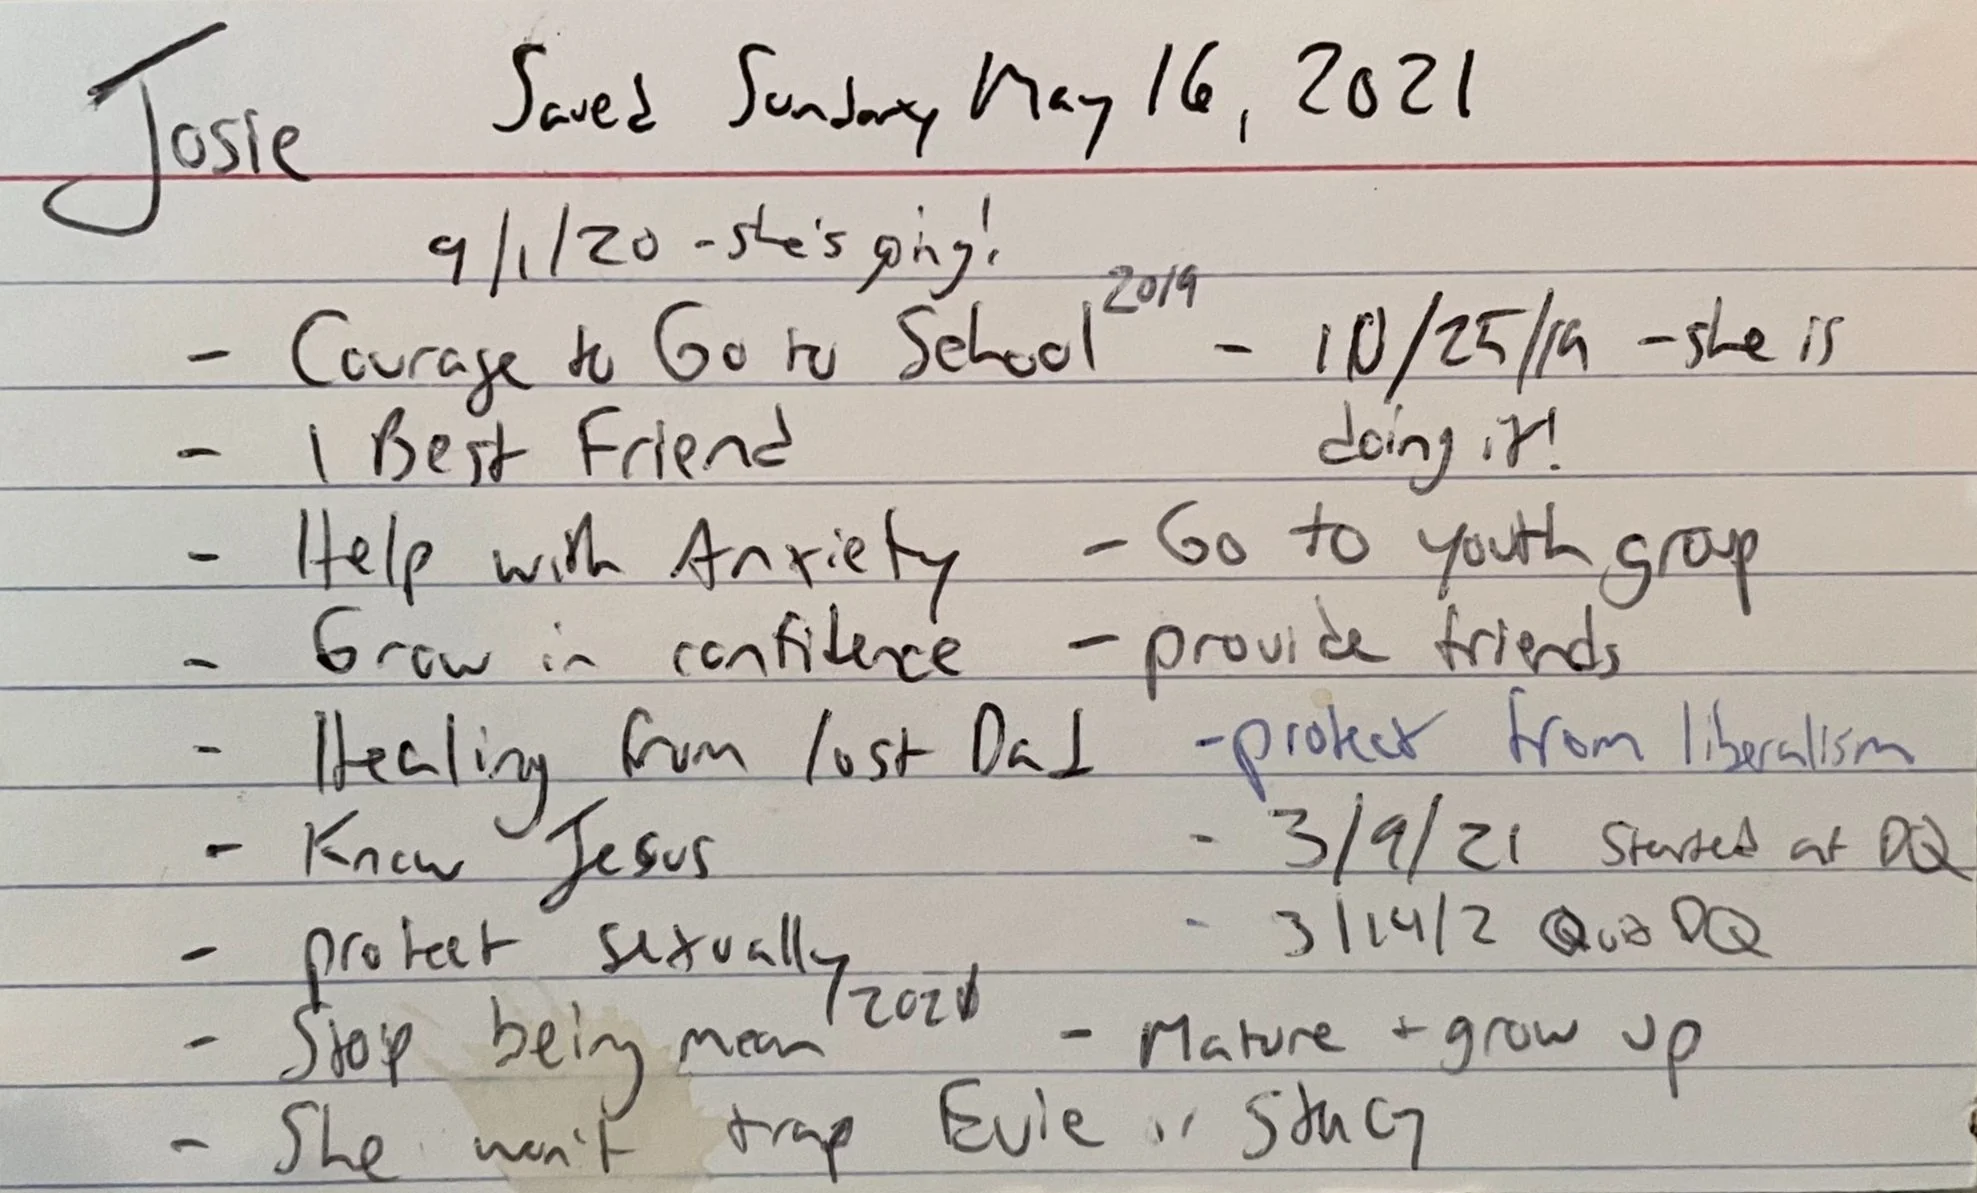 Josie Saved Sunday May 16, 2021
9/1/20 - she's going!
- Courage to Go to School 2019 - 10/25/19 - she is
- 1 Best Friend doing it!
- Help with Anxiety - Go to youth group
- Grow in confidence - provide friends
- Healing from lost Dad - protect from liberalism
- Know Jesus - 3/9/21 Started at DQ
- protect sexually - 3/14/2 Quit DQ
- Stop being mean 2021 - Mature + grow up
- She won't trap Evie or Stacy